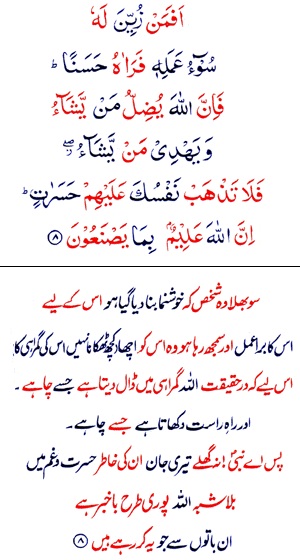 اَفَمَنْ زُيِّنَ لَهٗ
سُوْٓءُ عَمَلِهٖ فَرَاٰهُ حَسَنًا ؕ
فَاِنَّ اللّٰهَ يُضِلُّ مَنْ يَّشَآءُ
وَ يَهْدِىْ مَنْ يَّشَآءُ ۖ
فَلَا تَذْهَبْ نَفْسُكَ عَلَيْهِمْ حَسَرٰتٍ ؕ
اِنَّ اللّٰهَ عَلِيْمٌۢ بِمَا يَصْنَعُوْنَ ۸
سو بھلا وہ شخص کہ خوشنما بنا دیا گیا ہو اس کے لیے
اس کا برا عمل اور سمجھ رہا ہو وہ اس کو اچھا، کچھ ٹھکانا نہیں اس کی گمراہی کا
اس لیے کہ درحقیقت اللہ گمراہی میں ڈال دیتا ہے جسے چاہے ۔
اور راہِ راست دکھاتا ہے جسے چاہے ۔
پس اے نبیؐ! نہ گھلے تیری جان ان کی خاطر حسرت و غم میں
بلاشبہ اللہ پوری طرح باخبر ہے
ان باتوں سے جو یہ کر رہے ہیں ۸